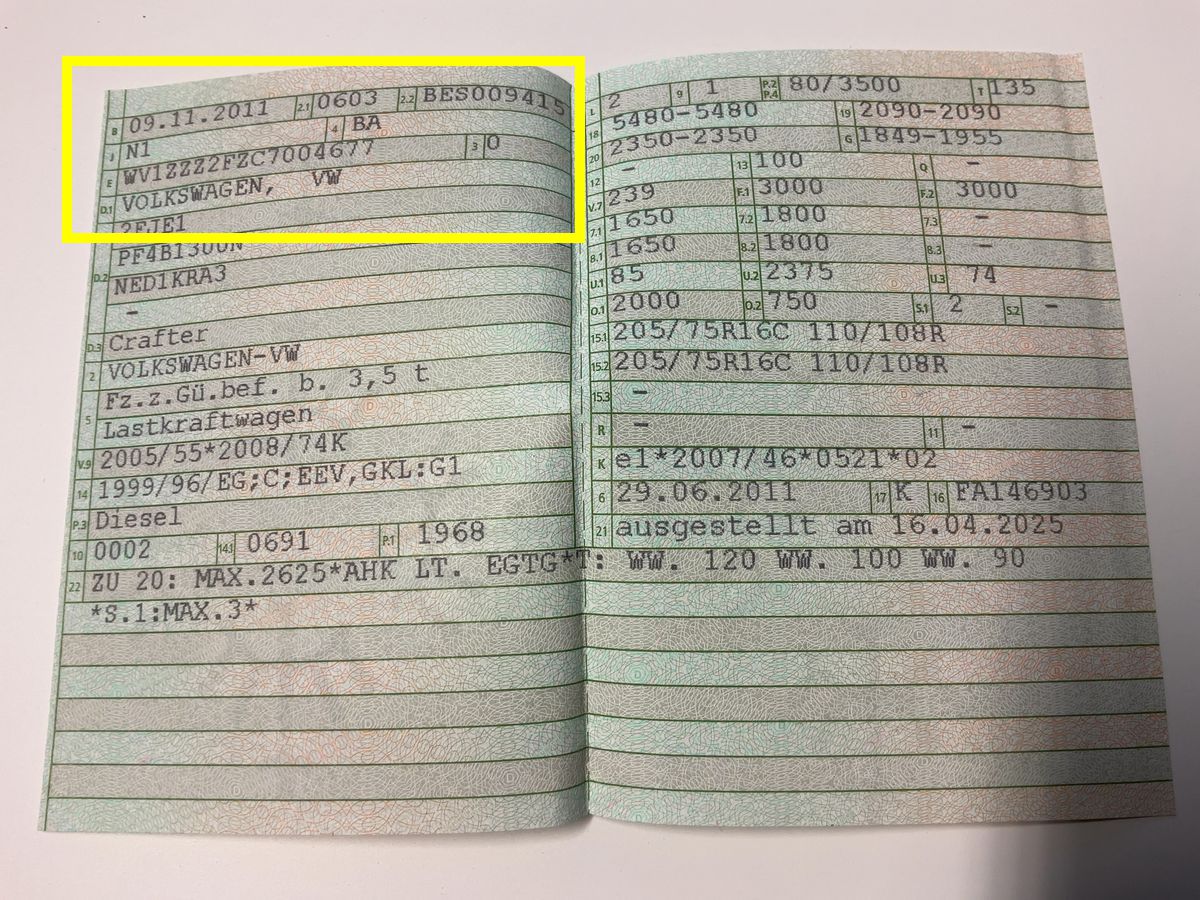 B 09.11.2011 2.1 0603 2.2 BES009415
J N1 4 BA
E WV1ZZZ2FZC7004677 3 0
D.1 VOLKSWAGEN, VW
2FJE1
D.2 PF4B1300N
NED1KRA3
-
D.3 Crafter
2 VOLKSWAGEN-VW
5 Fz.z.Gü.bef. b. 3,5 t
Lastkraftwagen
V.9 2005/55*2008/74K
14 1999/96/EG;C;EEV,GKL:G1
P.3 Diesel
10 0002 14.1 0691 P.1 1968
22 ZU 20: MAX.2625*AHK LT. EGTG*T: WW. 120 WW. 100 WW. 90
*S.1:MAX.3*
L 2 9 1 P.2 P.4 80/3500 T 135
18 5480-5480 19 2090-2090
20 2350-2350 G 1849-1955
12 - 13 100 Q -
V.7 239 F.1 3000 F.2 3000
7.1 1650 7.2 1800 7.3 -
8.1 1650 8.2 1800 8.3 -
U.1 85 U.2 2375 U.3 74
O.1 2000 O.2 750 S.1 2 S.2 -
15.1 205/75R16C 110/108R
15.2 205/75R16C 110/108R
15.3 -
R - 11 -
K e1*2007/46*0521*02
6 29.06.2011 17 K 16 FA146903
21 ausgestellt am 16.04.2025